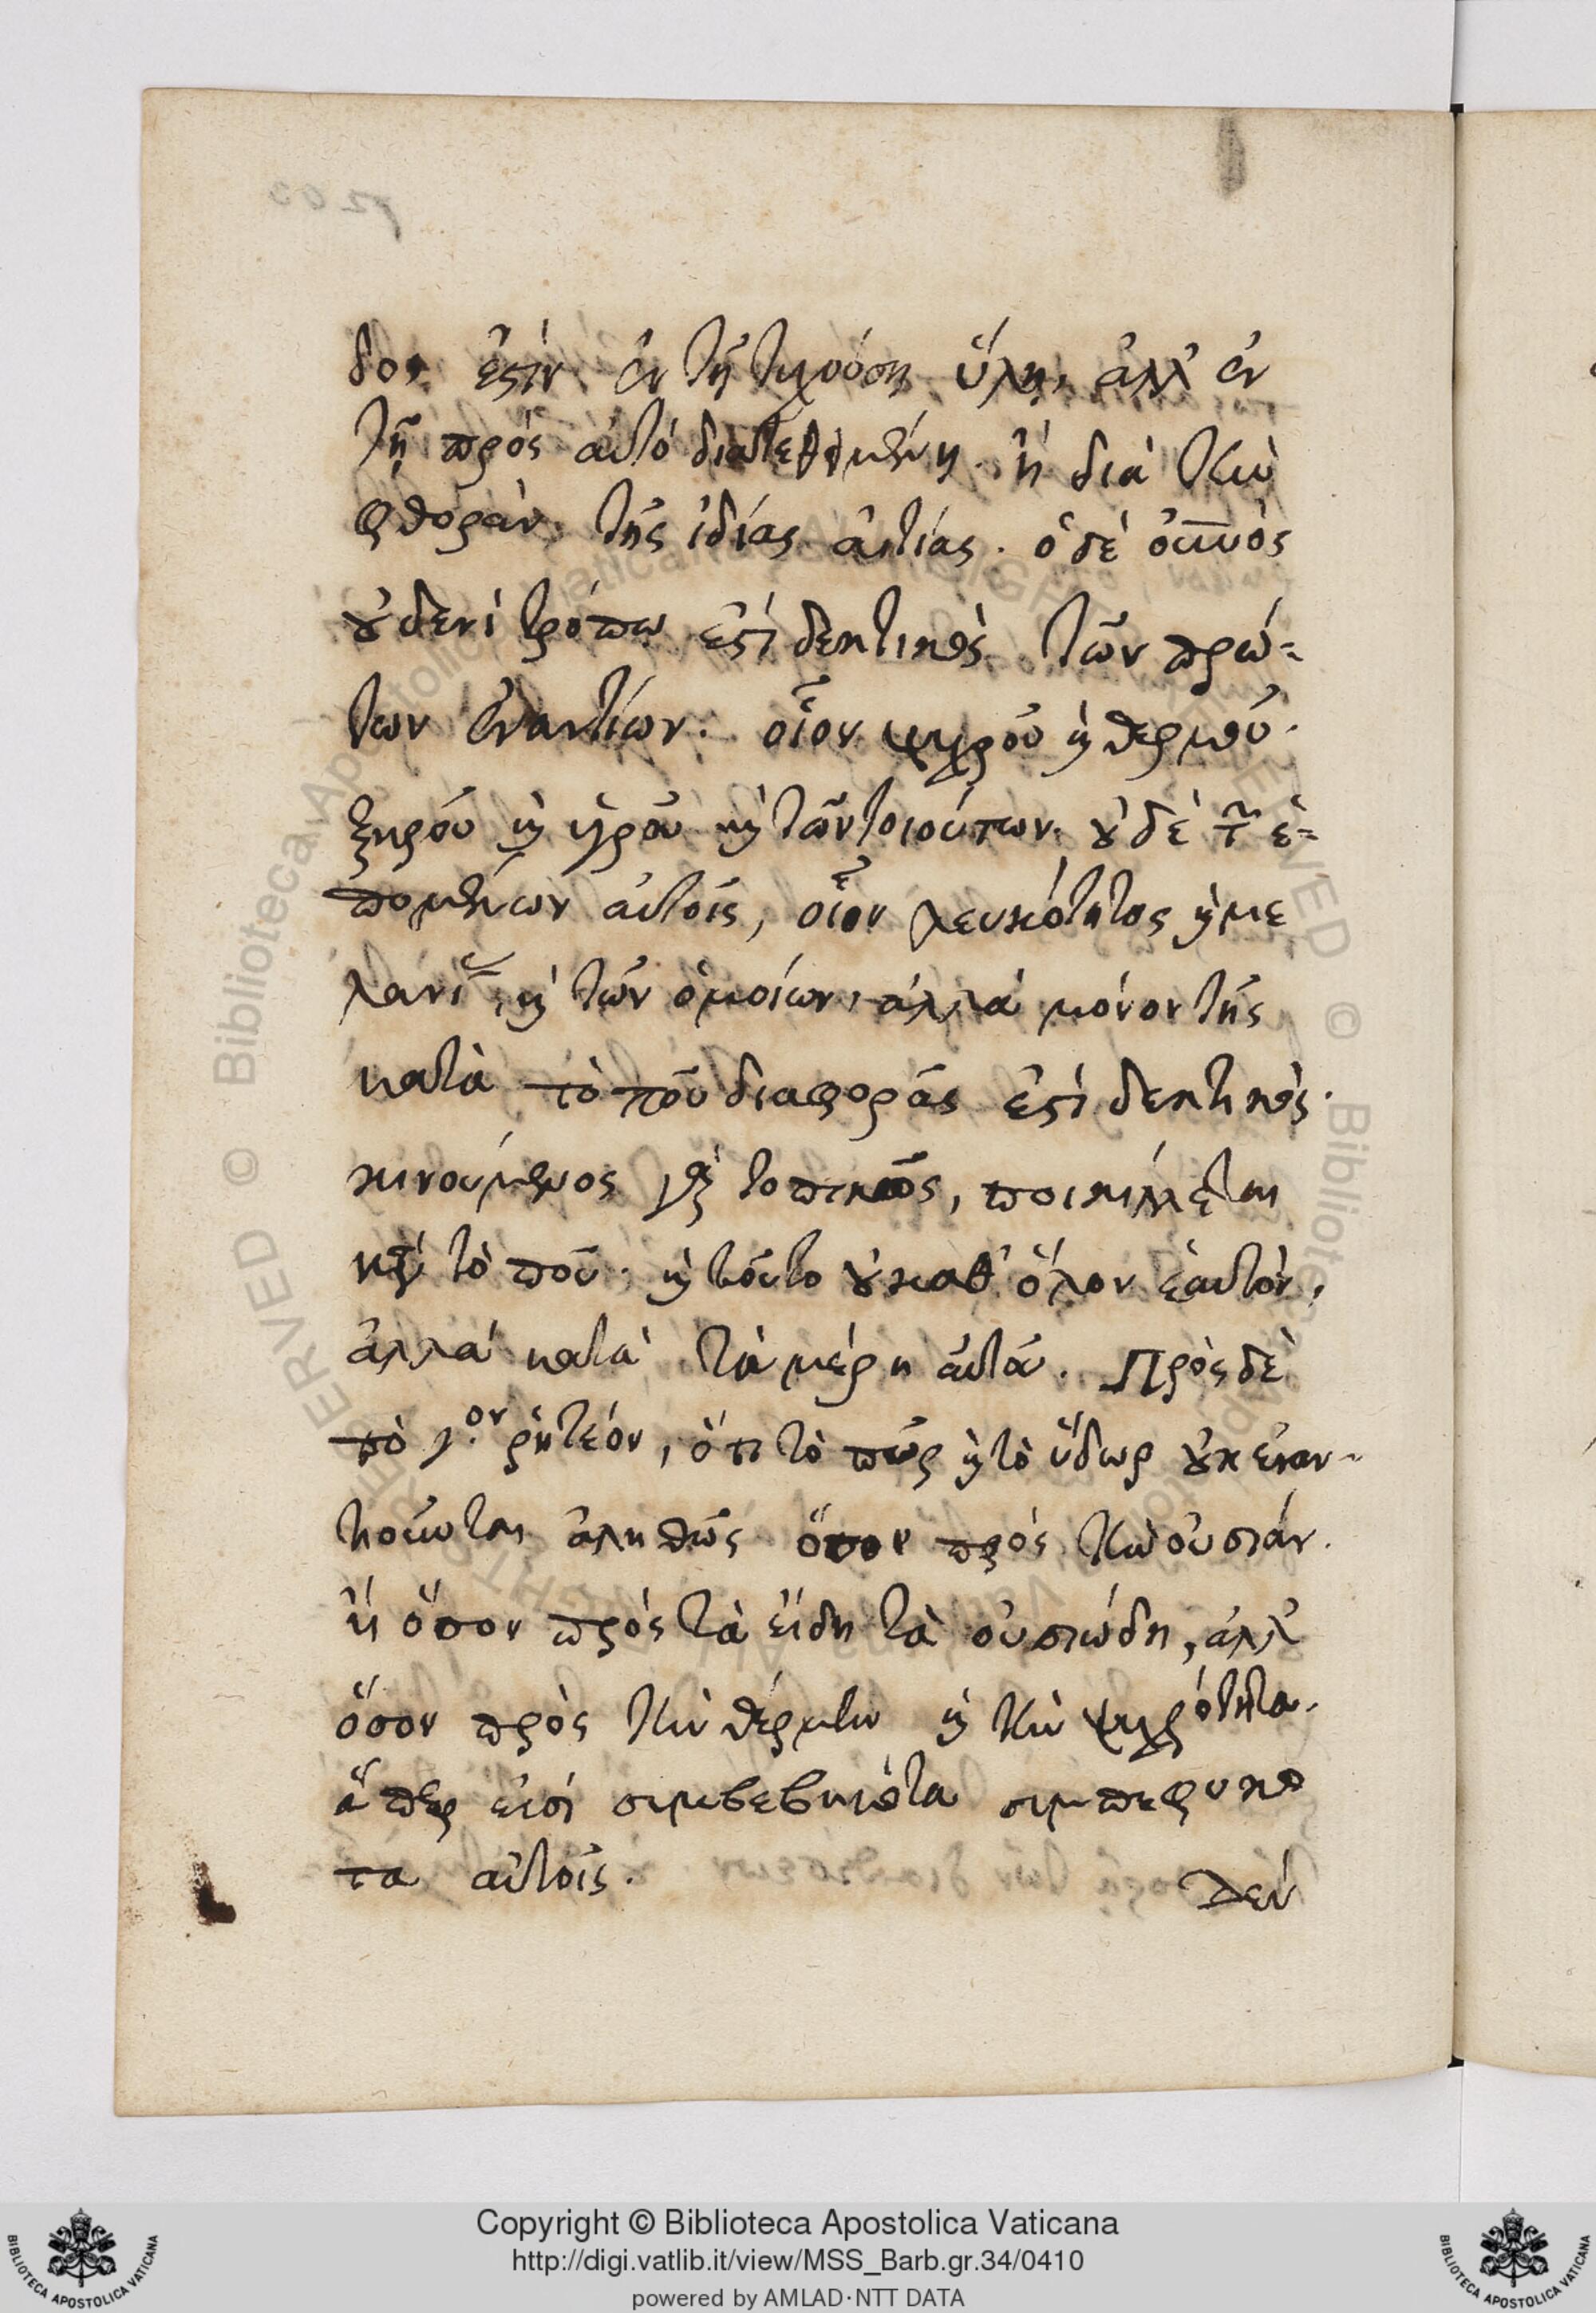 δος ἐστὶν ἐν τῇ τυχούσῃ ὕλῃ, ἀλλ' ἐν
τῇ πρὸς αὐτὸ διατεθειμένῃ. ἢ διὰ τὴν
φθορὰν τῆς ἰδίας αἰτίας. ὁ δὲ οὐνὸς
οὐδενὶ τρόπω ἐστὶ δεκτικὸς τῶν πρώ-
των ἐναντίων. οἷον ψυχροῦ καὶ θερμοῦ.
ξηροῦ καὶ ὑγροῦ καὶ τῶν τοιούτων. οὐδὲ τῶν ἑ-
πομένων αὐτοῖς, οἷον λευκότητος καὶ με
λανί, καὶ τῶν ὁμοίων, ἀλλὰ μόνον τῆς
κατὰ τὸ ποῦ διαφορᾶς ἐστὶ δεκτικὸς.
κινούμενος γὰρ τοπικῶς, ποικίλλεται
κατὰ τὸ ποῦ. καὶ τοῦτο οὐ καθ' ὅλον ἑαυτὸν,
ἀλλὰ κατὰ τὰ μέρη αὐτά. Πρὸς δὲ
τὸ γ.ον ῥητέον, ὅτι τὸ πῦρ καὶ τὸ ὕδωρ οὐκ ἐναν-
τιοῦνται ἀληθῶς ὅσον πρὸς τὴν οὐσίαν.
ἢ ὅσον πρὸς τὰ εἴδη τὰ οὐσιώδη, ἀλλ'
ὅσον πρὸς τὴν θέρμην καὶ τὴν ψυχρότητα.
ἅπερ εἰσὶ συμβεβηκότα συμπεφυκό
τα αὐτοῖς.
Δεύ
Copyright © Biblioteca Apostolica Vaticana
http://digi.vatlib.it/view/MSS_Barb.gr.34/0410
powered by AMLAD·NTT DATA